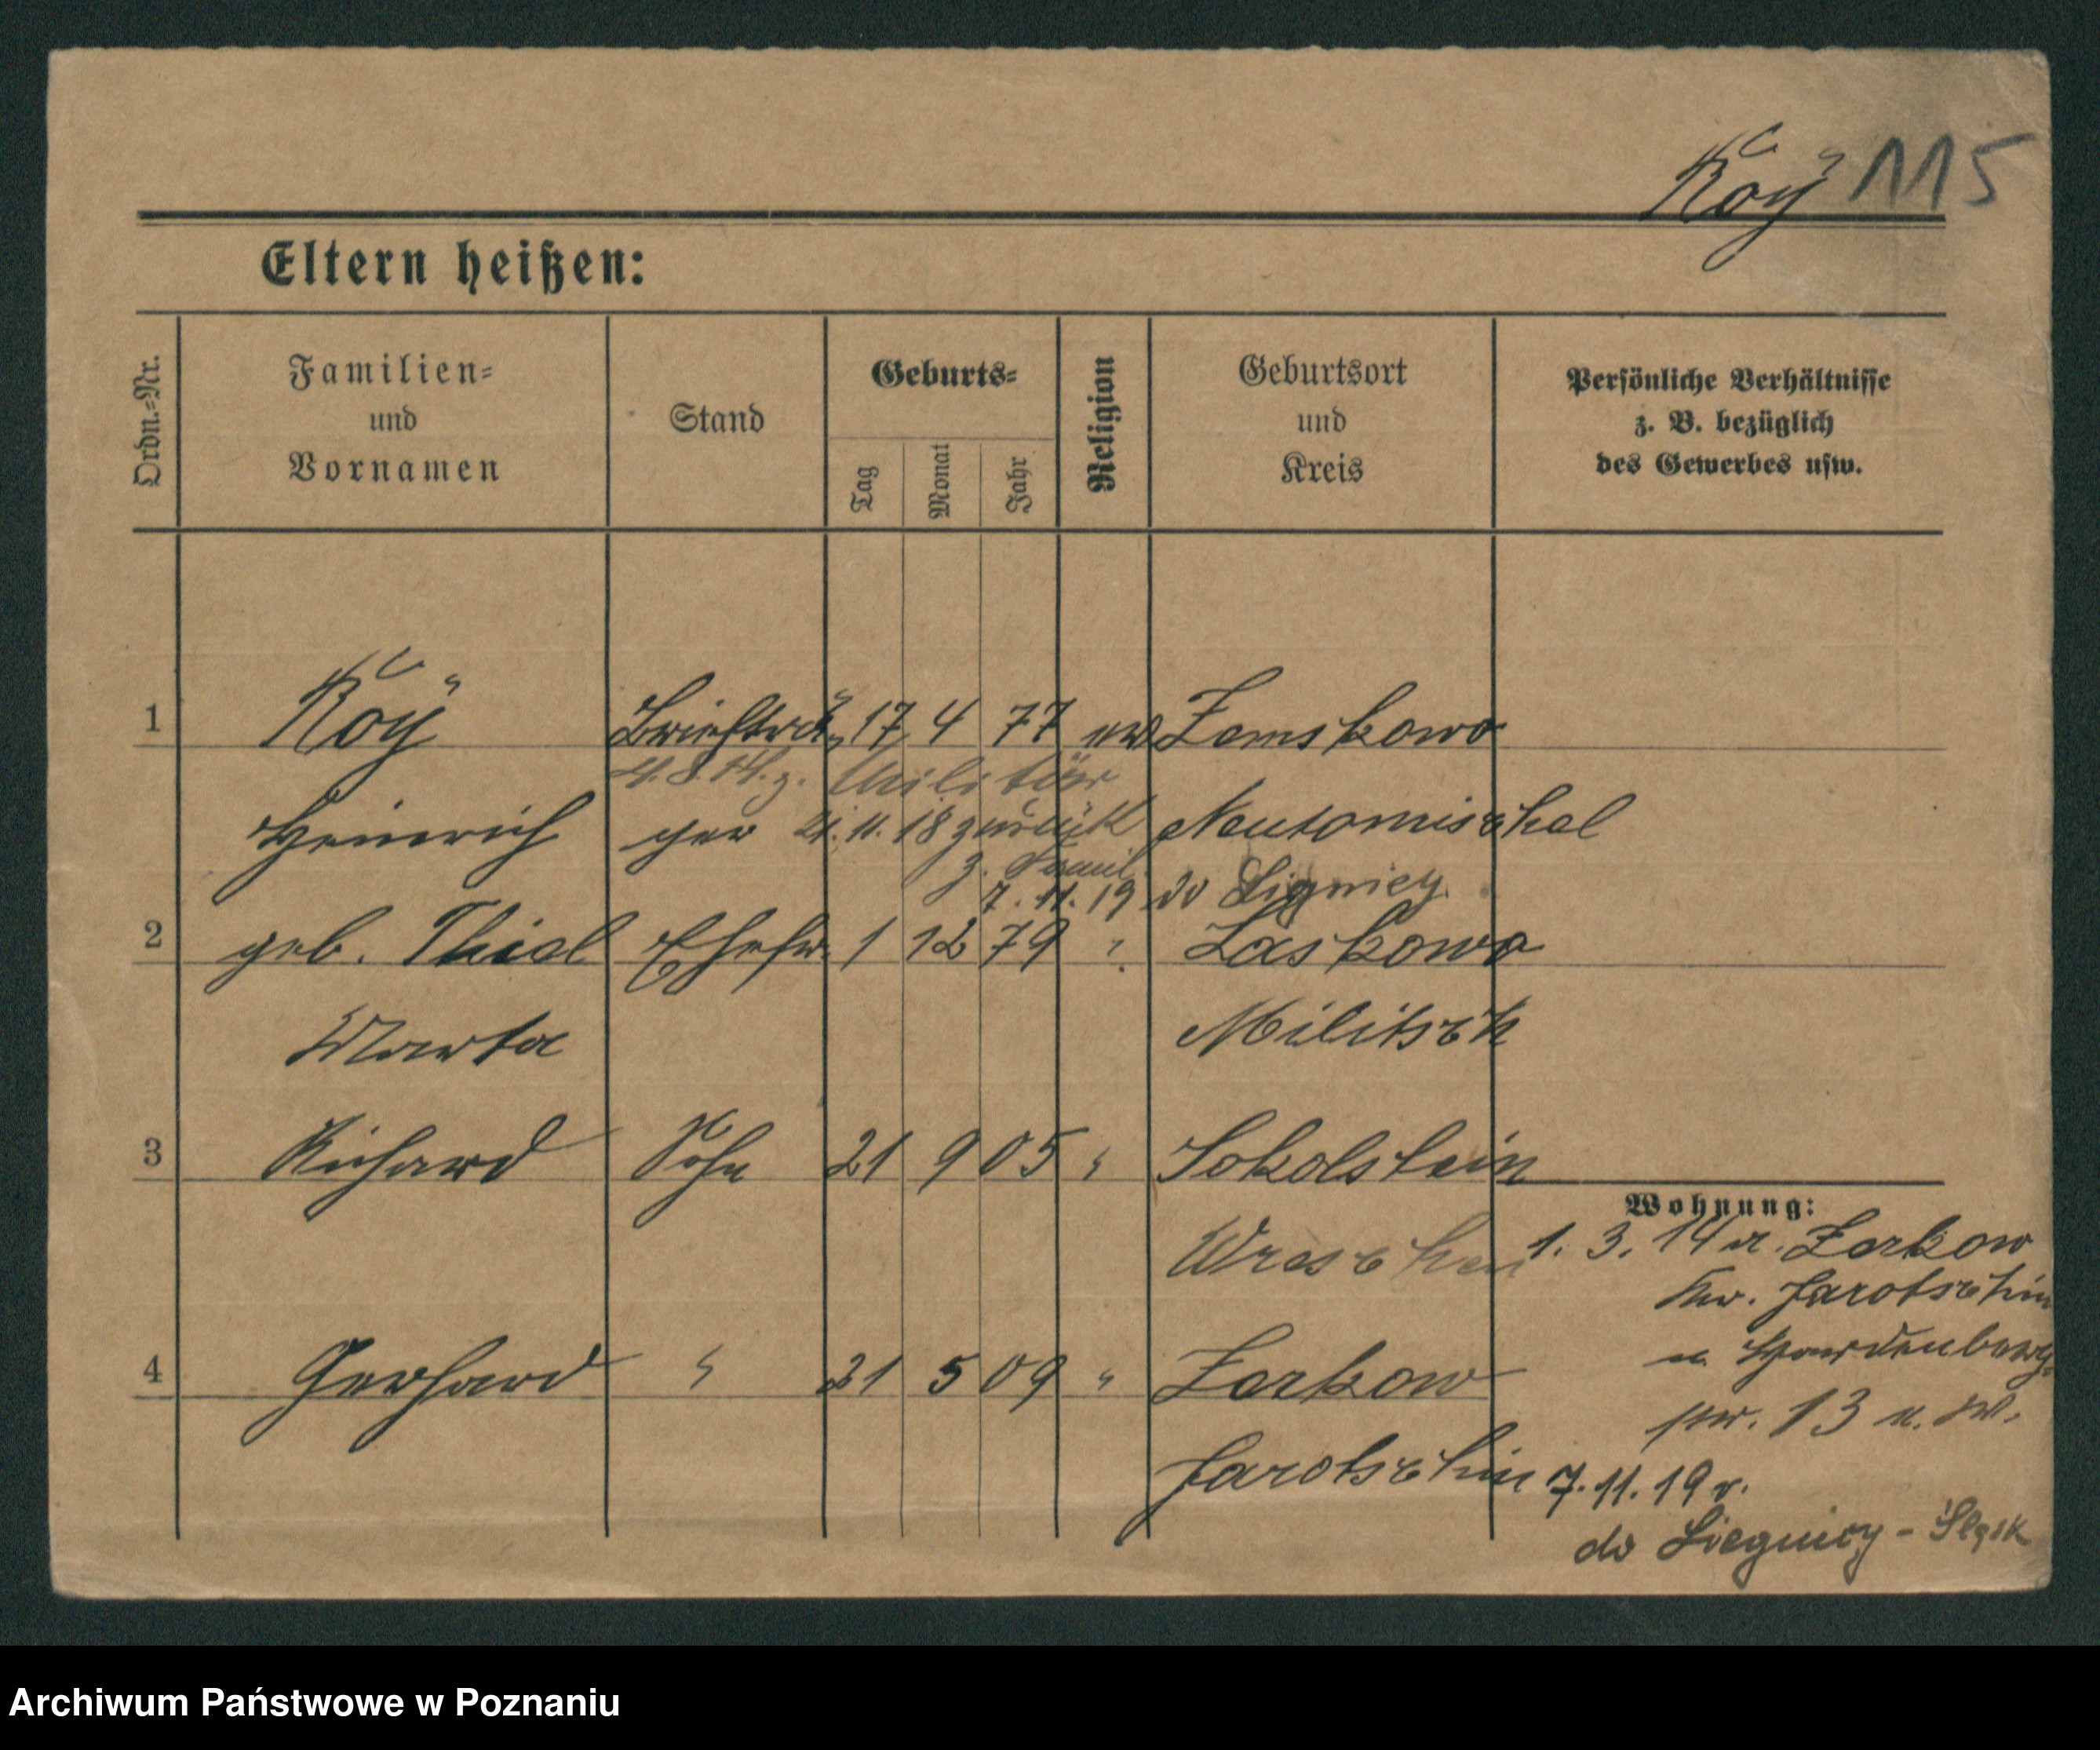 Roÿ 115
Eltern heißen:
Ordn.=Nr.
Familien=
und
Vornamen
Stand
Geburts=
Tag
Monat
Jahr
Religion
Geburtsort
und
Kreis
Persönliche Verhältnisse
z. B. bezüglich
des Gewerbes usw.
1 Roÿ Briefträ= 17 4 77 ev Zemskowo
4. 8. 14. z. Militär
Heinrich ger 21. 11. 18 zurück Neutomischel
z. Famil.
7. 11. 19 do Lignicy
2 geb. Thiel Ehefr. 1 12 79 " Laskowo
Marta Militsch
3 Richard Sohn 21 9 05 " Sokolstein
Wreschen
4 Gerhard " 21 5 09 " Zerkow
Jarotschin
Wohnung:
1. 3. 14 a. Zerkow
Kr. Jarotschin
n. Hardenberg=
str. 13 u. W.
7. 11. 19 r.
do Liegnicy - Śląsk
Archiwum Państwowe w Poznaniu